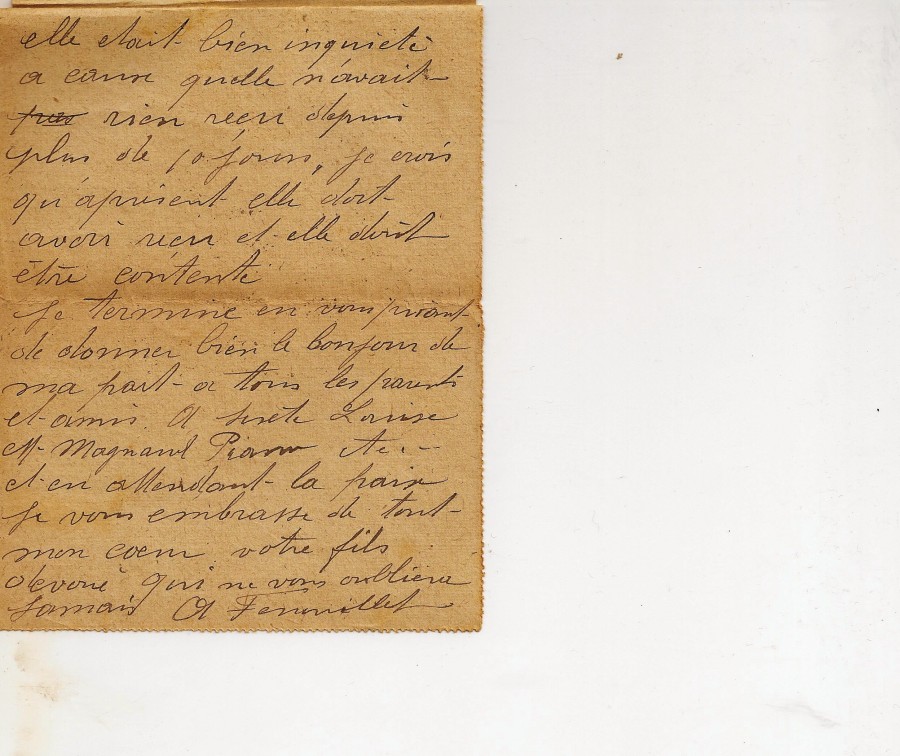 elle etait bien inquiete
a cause quelle n'avait
pas rien reçu depuis
plus de 10 jours, je crois
qu'apresent elle doit
avoir reçu et elle doit
être contente
Je termine en vous priant
de donner bien le bonjour de
ma part a tous les parents
et amis. A Louise
Mr Magnand etc. –
et en attendant la paix
Je vous embrasse de tout
mon coeur votre fils
devoué qui ne vous oubliera
Jamais A